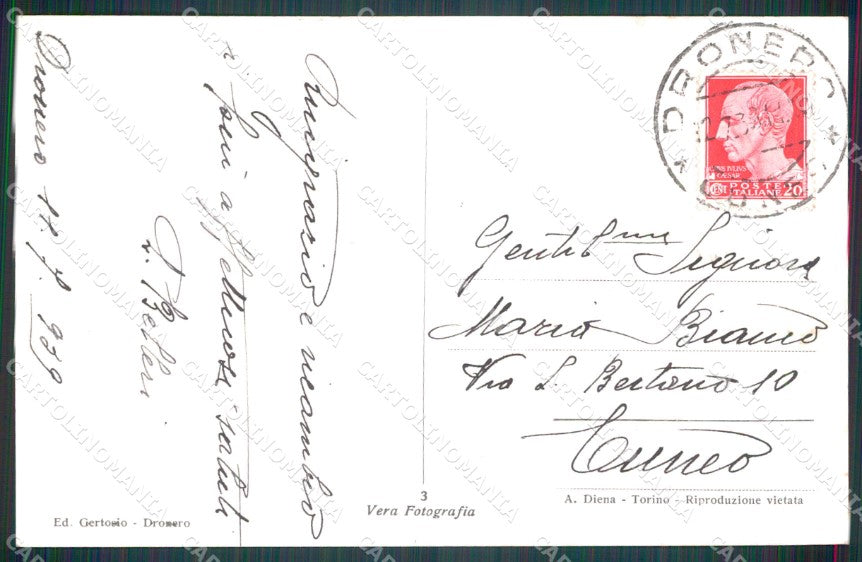 Dronero 11.7.939
Ringrazio e ricambio
i suoi affettuosi saluti
Gentil.ma Signora
Maria Bianco
Via L. Bertano 10
Cuneo
DRONERO
CUNEO
POSTE
ITALIANE
CENT 20
CAESAR
3
Vera Fotografia
Ed. Gertosio - Dronero
A. Diena - Torino - Riproduzione vietata
CARTOLINOMANIA